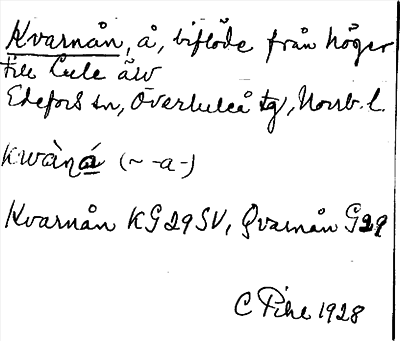 Kvarnån, å, biflöde från höger
till Lule älv
Edefors sn, Överluleå tg, Norrb. l.
kwàṇá (~ -a-)
Kvarnån KG 29 SV, Qvarnån G29
C Pihl 1928